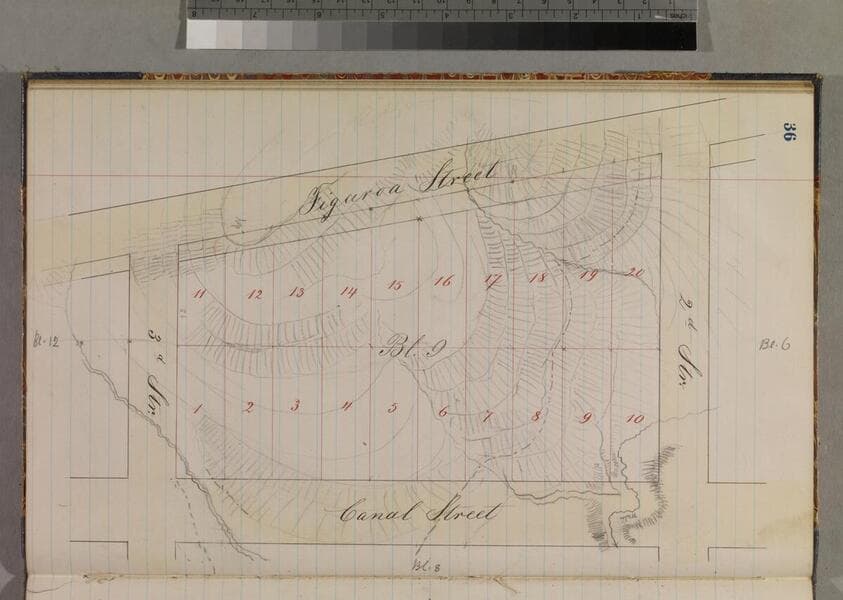 36
Figuroa Street
11 12 13 14 15 16 17 18 19 20
Bl. 12
3d Str.
Bl. 9
2d Str.
Bl. 6
1 2 3 4 5 6 7 8 9 10
Canal Street
Bl. 8